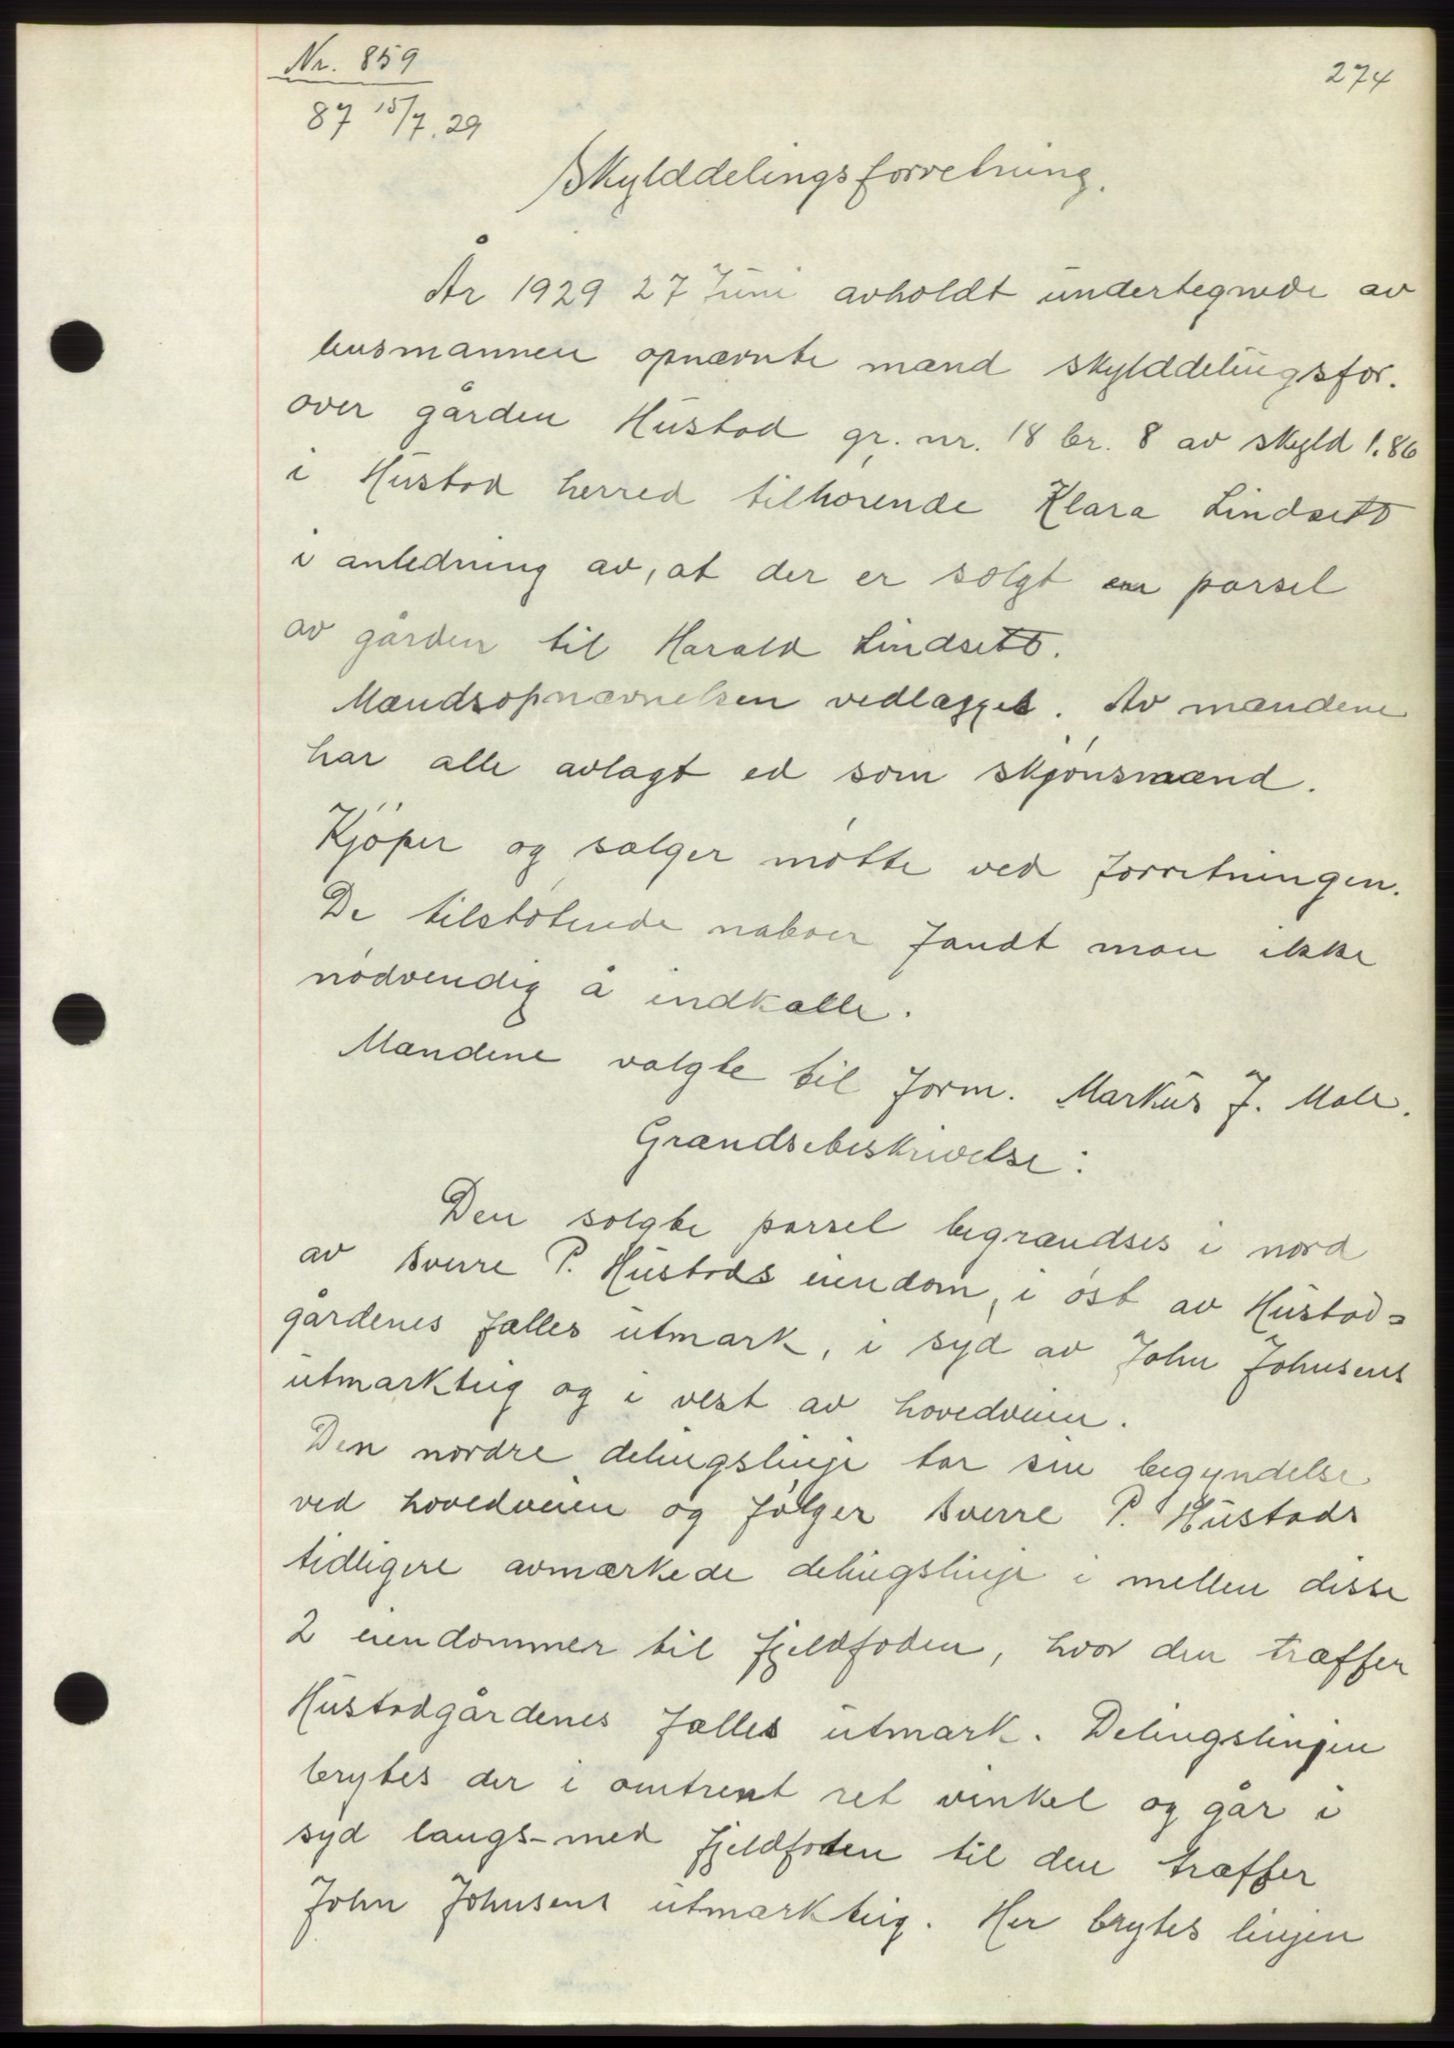 Nr. 859
274
87 15/7. 29
Skylddelingsforretning.
År 1929 27 Juni avholdt undertegnede av
lensmannen opnævnte mænd skylddelingsfor.
over gården Hustad gr. nr. 18 br. 8 av skyld 1.86
i Hustad herred tilhørende Klara Lindseth
i anledning av, at der er solgt en parsel
av gården til Harald Lindseth.
Mændsopnævnelsen vedlægges. Av mændene
har alle avlagt ed som skjønsmænd.
Kjöper og sælger møtte ved forretningen.
De tilstøtende naboer fandt man ikke
nødvendig å indkalle.
Mændene valgte til form. Markus J. Male.
Grændsebeskrivelse:
Den solgte parsel begrændses i nord
av Sverre P. Hustads eiendom, i øst av Hustad=
gårdenes fælles utmark, i syd av John Johnsens
utmarkteig og i vest av hovedveien.
Den nordre delingslinje tar sin begyndelse
ved hovedveien og følger Sverre P. Hustads
tidligere avmærkede delingslinje i mellem disse
2 eiendommer til fjeldfoden, hvor den træffer
Hustadgårdenes fælles utmark. Delingslinjen
brytes der i omtrent ret vinkel og går i
syd langs-med fjeldfoten til den træffer
John Johnsens utmarkteig. Her brytes linjen